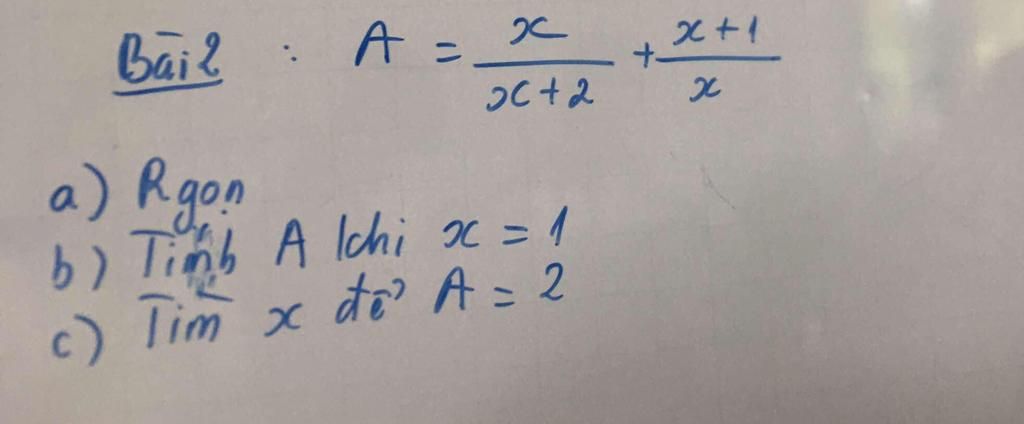 Bài 2 : A = x/(x+2) + (x+1)/x
a) R gọn
b) Tính A khi x = 1
c) Tìm x để A = 2